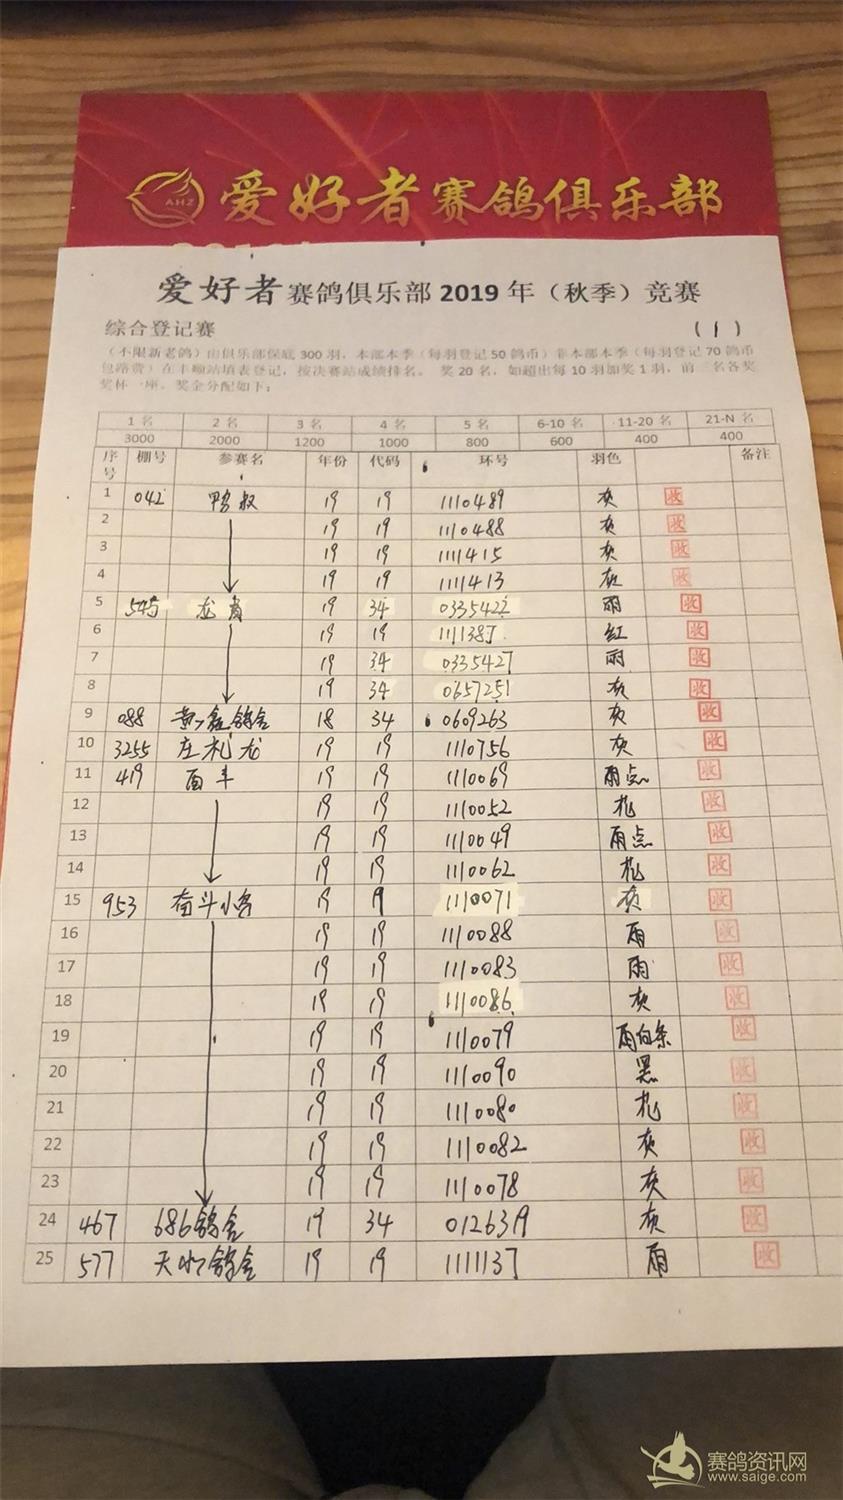 AHZ 爱好者赛鸽俱乐部
爱好者赛鸽俱乐部2019年（秋季）竞赛
综合登记赛 (1)
（不限新老鸽）由俱乐部保底300羽，本部本季（每羽登记50鸽币）非本部本季（每羽登记70鸽币
包路费）在丰顺站填表登记，按决赛站成绩排名。 奖20名，如超出每10羽加奖1羽，前三名各奖
奖杯一座。奖金分配如下：
1名 2名 3名 4名 5名 6-10名 11-20名 21-N名
3000 2000 1200 1000 800 600 400 400
序号 棚号 参赛名 年份 代码 环号 羽色 备注
1 042 鸭叔 19 19 1110489 灰 收
2 19 19 1110488 灰 收
3 19 19 1111415 灰 收
4 19 19 1111413 灰 收
5 545 19 34 0335422 雨 收
6 19 19 1111387 红 收
7 19 34 0335427 雨 收
8 19 34 0657251 灰 收
9 088 鸽舍 18 34 0609263 灰 收
10 3255 庄礼龙 19 19 1110756 灰 收
11 419 百丰 19 19 1110069 雨点 收
12 19 19 1110052 花 收
13 19 19 1110049 雨点 收
14 19 19 1110062 花 收
15 953 奋斗小客 19 19 1110071 灰 收
16 19 19 1110088 雨 收
17 19 19 1110083 雨 收
18 19 19 1110086 灰 收
19 19 19 1110079 雨白条 收
20 19 19 1110090 黑 收
21 19 19 1110080 花 收
22 19 19 1110082 灰 收
23 19 19 1110078 灰 收
24 467 686鸽舍 19 34 0126319 灰 收
25 577 鸽舍 19 19 1111137 雨 收
赛鸽资讯网
www.saige.com